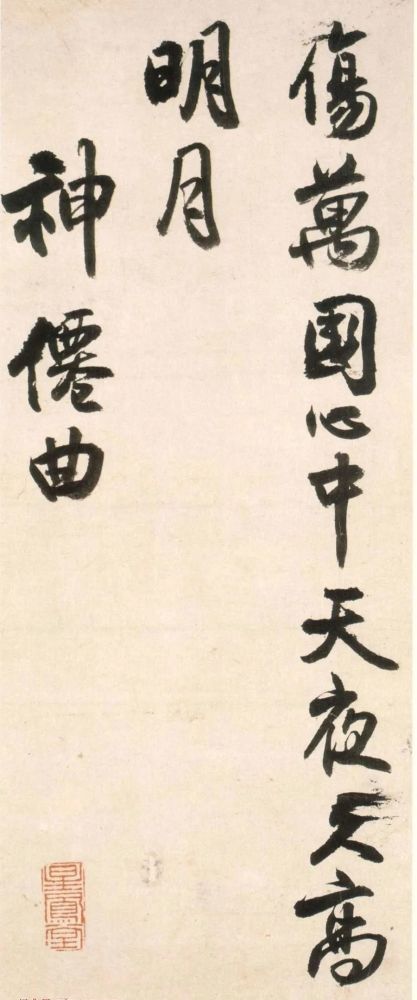 傷萬國心中天夜久高
明月
神僊曲